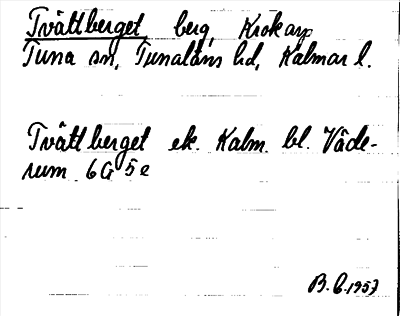 Tvättberget berg, Krokarp
Tuna sn, Tunaläns hd, Kalmar l.
Tvättberget ek. Kalm. bl. Väde-
rum 6G 5e
B.C. 1957